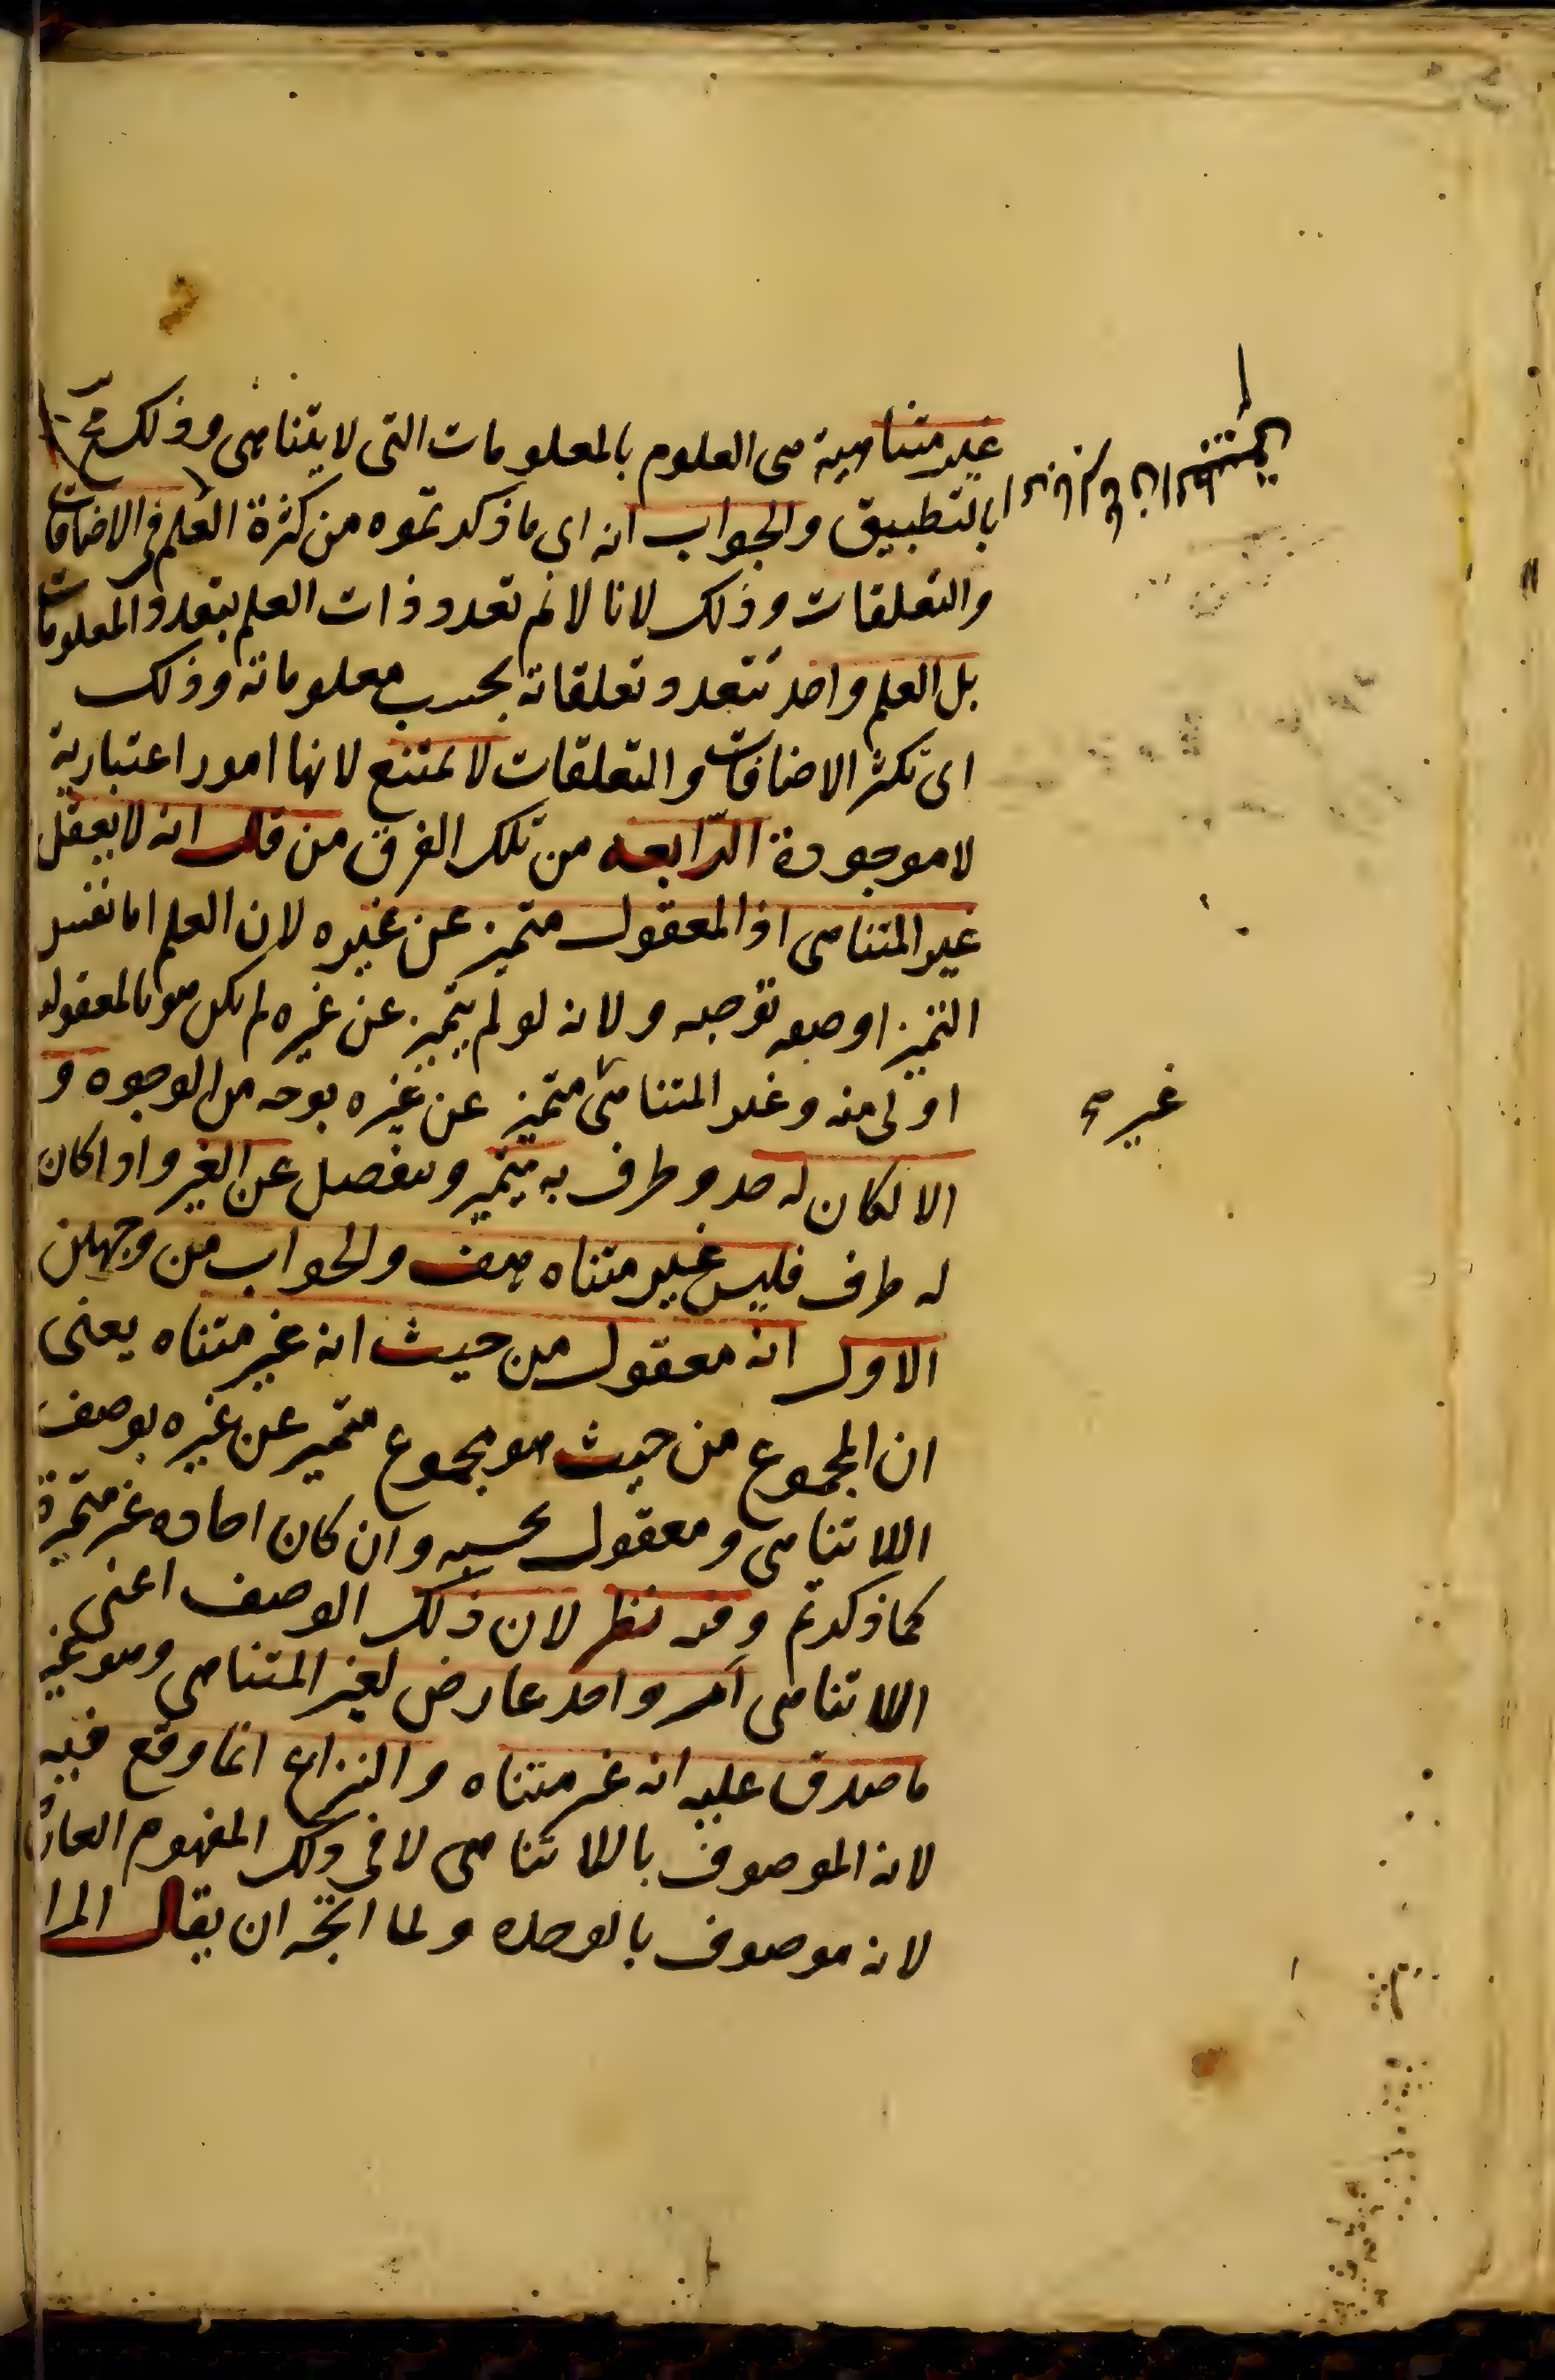 غير متناهية هى العلوم بالمعلومات التى لا يتناهى وذلك مح
بالتطبيق والجواب انه اى ما ذكرتموه من كثرة العلم فى الاضافات
والتعلقات وذلك لانا لا نم تعدد ذات العلم بتعدد المعلومات
بل العلم واحد تتعدد تعلقاته بحسب معلوماته وذلك
اى تكثر الاضافات والتعلقات لا يمتنع لانها امور اعتبارية
لا موجودة الرابعه من تلك الفرق من قال انه لا يعقل
غير المتناهى اذ المعقول متميز عن غيره لان العلم اما نفس
التميز او صفه توجبه ولانه لو لم يتميز عن غيره لم يكن هو بالمعقوليه
اولى منه وغير المتناهى متميز عن غيره بوجه من الوجوه و
الا لكان له حد وطرف به يتميز وينفصل عن الغير واذا كان
له طرف فليس غير متناه هف والجواب من وجهين
الاول انه معقول من حيث انه غير متناه يعنى
ان المجموع من حيث هو مجموع متميز عن غيره بوصف
اللاتناهى ومعقول بحسبه وان كان احاده غير متميزة
كما ذكرتم وفيه نظر لان ذلك الوصف اعنى
اللاتناهى امر واحد عارض لغير المتناهى وهو غير
ما صدق عليه انه غير متناه والنزاع انما وقع فيه
لانه الموصوف باللاتناهى لا فى ذلك المفهوم العارض
لانه موصوف بالوحده ولما اتجه ان يقال المرا
غير صح